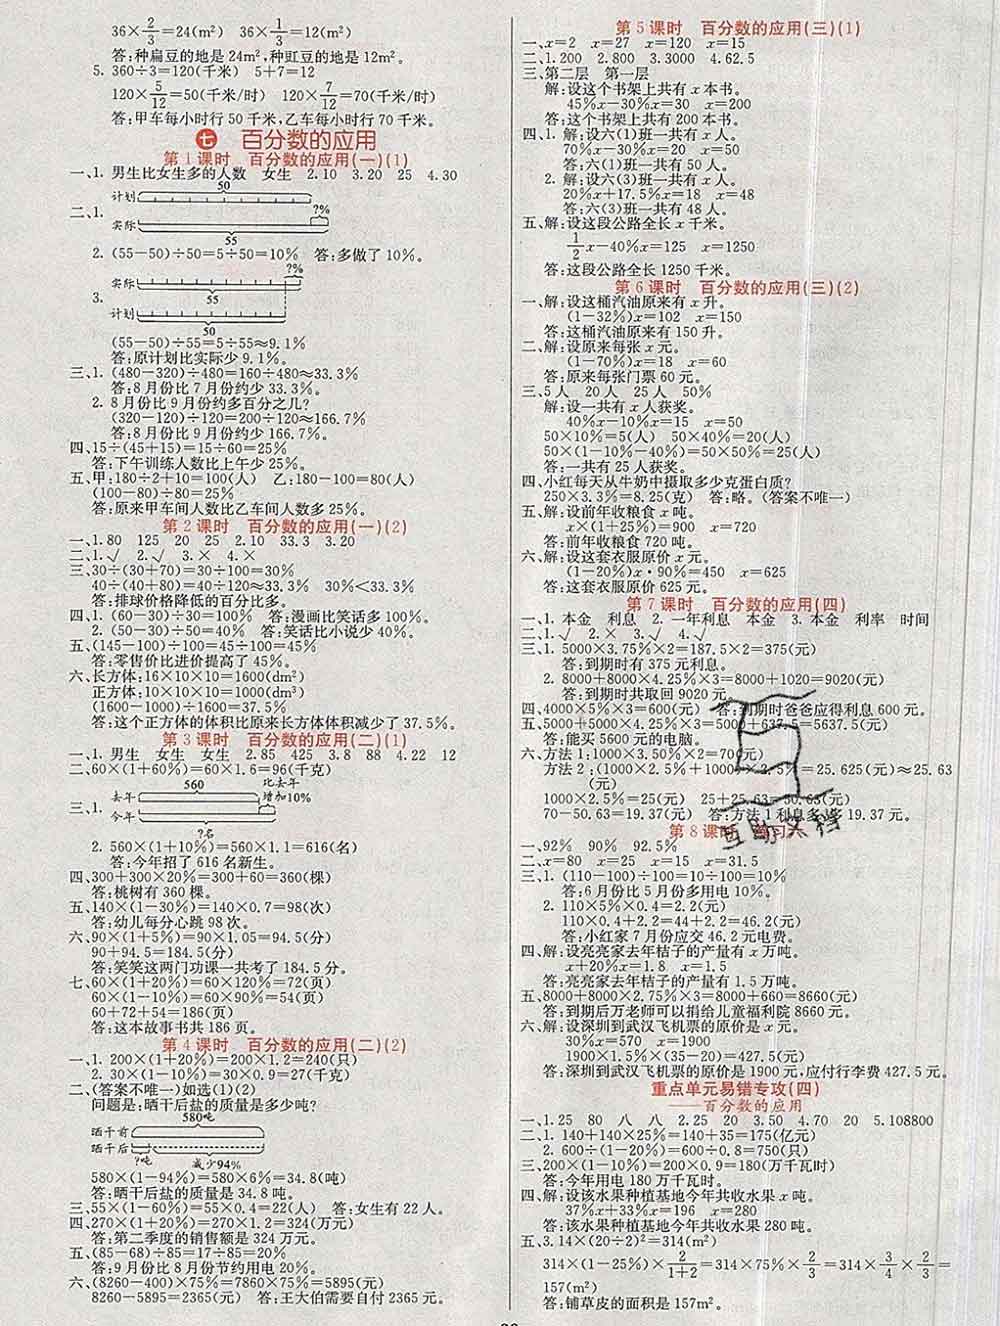 36×2/3=24(m²)　36×1/3=12(m²)
答:种扁豆的地是24m²,种豇豆的地是12m²。
5. 360÷3=120(千米)　5+7=12
120×5/12=50(千米/时)　120×7/12=70(千米/时)
答:甲车每小时行50千米,乙车每小时行70千米。
七　百分数的应用
第1课时　百分数的应用(一)(1)
一、1. 男生比女生多的人数　女生　2.10　3.20　25　4.30
50
计划
二、1.
?%
实际
55
2. (55-50)÷50=5÷50=10%　答:多做了10%。
?%
实际
3.
55
计划
50
(55-50)÷55=5÷55≈9.1%
答:原计划比实际少9.1%。
三、1. (480-320)÷480=160÷480≈33.3%
答:8月份比7月份约少33.3%。
2. 8月份比9月份约多百分之几?
(320-120)÷120=200÷120≈166.7%
答:8月份比9月份约少166.7%。
四、15÷(45+15)=15÷60=25%
答:下午训练人数比上午少25%。
五、甲:180÷2+10=100(人)　乙:180-100=80(人)
(100-80)÷80=25%
答:原来甲车间人数比乙车间人数多25%。
第2课时　百分数的应用(一)(2)
一、1.80　125　20　25　2.10　33.3　3.20
二、1.√　2.√　3.×　4.×
三、30÷(30+70)=30÷100=30%
40÷(40+80)=40÷120≈33.3%　30%<33.3%
答:排球价格降低的百分比多。
四、1. (60-30)÷30=100%　答:漫画比笑话多100%。
2. (50-30)÷50=40%　答:笑话比小说少40%。
五、(145-100)÷100=45÷100=45%
答:零售价比进价提高了45%。
六、长方体:16×10×10=1600(dm²)
正方体:10×10×10=1000(dm³)
(1600-1000)÷1600=37.5%
答:这个正方体的体积比原来长方体体积减少了37.5%。
第3课时　百分数的应用(二)(1)
一、1. 男生　女生　女生　2.85　425　3.8　88　4.22　12
二、60×(1+60%)=60×1.6=96(千克)
560　比去年
去年　增加10%
三、1.
今年
?名
2. 560×(1+10%)=560×1.1=616(名)
答:今年招了616名新生。
四、300+300×20%=300+60=360(棵)
答:桃树有360棵。
五、140×(1-30%)=140×0.7=98(次)
答:幼儿每分心跳98次。
六、90×(1+5%)=90×1.05=94.5(分)
90+94.5=184.5(分)
答:笑笑这两门功课一共考了184.5分。
七、60×(1+20%)=60×120%=72(页)
60×(1-10%)=60×90%=54(页)
60+72+54=186(页)
答:这本故事书共186页。
第4课时　百分数的应用(二)(2)
一、1. 200×(1+20%)=200×1.2=240(只)
2. 30×(1-10%)=30×0.9=27(千克)
二、(答案不唯一)如选(1)(2)
问题是:晒干后盐的质量是多少吨?
580吨
晒干前
晒干后
?吨　减少94%
580×(1-94%)=580×6%=34.8(吨)
答:晒干后盐的质量是34.8吨。
三、55×(1-60%)=55×0.4=22(人)　答:女生有22人。
四、270×(1+20%)=270×1.2=324(万元)
答:第二季度的销售额是324万元。
五、(85-68)÷85=17÷85=20%
答:9月份比8月份节约用电20%。
六、(8260-400)×75%=7860×75%=5895(元)
8260-5895=2365(元)　答:王大伯需要自付2365元。
第5课时　百分数的应用(三)(1)
一、x=2　x=27　x=120　x=15
二、1.200　2.800　3.3000　4.62.5
三、第二层　第一层
解:设这个书架上共有x本书。
45%x-30%x=30　x=200
答:这个书架上共有200本书。
四、1. 解:设六(1)班一共有x人。
70%x-30%x=20　x=50
答:六(1)班一共有50人。
2. 解:设六(3)班一共有x人。
20%x+17.5%x=18　x=48
答:六(3)班一共有48人。
五、解:设这段公路全长x千米。
1/2x-40%x=125　x=1250
答:这段公路全长1250千米。
第6课时　百分数的应用(三)(2)
一、解:设这桶汽油原来有x升。
(1-32%)x=102　x=150
答:这桶汽油原来有150升。
二、解:设原来每张x元。
(1-70%)x=18　x=60
答:原来每张门票60元。
三、5人　20人　25人　50%
解:设一共有x人获奖。
40%x-10%x=15　x=50
50×10%=5(人)　50×40%=20(人)
50×(1-10%-40%)=50×50%=25(人)
答:一共有25人获奖。
四、小红每天从牛奶中摄取多少克蛋白质?
250×3.3%=8.25(克)　答:略。(答案不唯一)
五、解:设前年收粮食x吨。
x×(1+25%)=900　x=720
答:前年收粮食720吨。
六、解:设这套衣服原价x元。
(1-20%)x·90%=450　x=625
答:这套衣服原价625元。
第7课时　百分数的应用(四)
一、1. 本金　利息　2. 一年利息　本金　3. 本金　利率　时间
二、1.√　2.×　3.√　4.√
三、1. 5000×3.75%×2=187.5×2=375(元)
答:到期时有375元利息。
2. 8000+8000×4.25%×3=8000+1020=9020(元)
答:到期时共取回9020元。
四、4000×5%×3=600(元)　答:到期时爸爸应得利息600元。
五、5000+5000×4.25%×3=5000+637.5=5637.5(元)
答:能买5600元的电脑。
六、方法1:1000×3.50%×2=70(元)
方法2:(1000×2.5%+1000)×2.5%=25.625(元)≈25.63
(元)
1000×2.5%=25(元)　25+25.63=50.63(元)
70-50.63=19.37(元)　答:方法1利息多,多19.37元。
第8课时　练习六
一、92%　90%　92.5%
二、x=80　x=25　x=15　x=31.5
三、1. (110-100)÷100=10÷100=10%
答:6月份比5月份多用电10%。
2. 110×5%×0.4=2.2(元)
110×0.4+2.2=44+2.2=46.2(元)
答:小红家7月份应交46.2元电费。
四、解:设亮亮家去年桔子的产量有x万吨。
x+20%x=1.8　x=1.5
答:亮亮家去年桔子的产量有1.5万吨。
五、8000+8000×2.75%×3=8000+660=8660(元)
答:到期后万老师可以捐给儿童福利院8660元。
六、解:设深圳到武汉飞机票的原价是x元。
30%x=570　x=1900
1900×1.5%×(35-20)=427.5(元)
答:深圳到武汉飞机票的原价是1900元,应付行李费427.5元。
重点单元易错专攻(四)
——百分数的应用
一、1.25　80　八　八　2.25　20　3.50　4.70　20　5.108800
二、1. 140+140×25%=140+35=175(亿元)
2. 600÷(1-20%)=600÷0.8=750(只)
三、200×(1-10%)=200×0.9=180(万千瓦时)
答:今年用电180万千瓦时。
四、解:设该水果种植基地今年共收水果x吨。
37%x+33%x=196　x=280
答:该水果种植基地今年共收水果280吨。
五、3.14×(20÷2)²=314(m²)
314×(1-25%)×2/(1+2)=314×75%×2/3=314×3/4×2/3=
157(m²)
答:铺草皮的面积是157m²。
互助文档